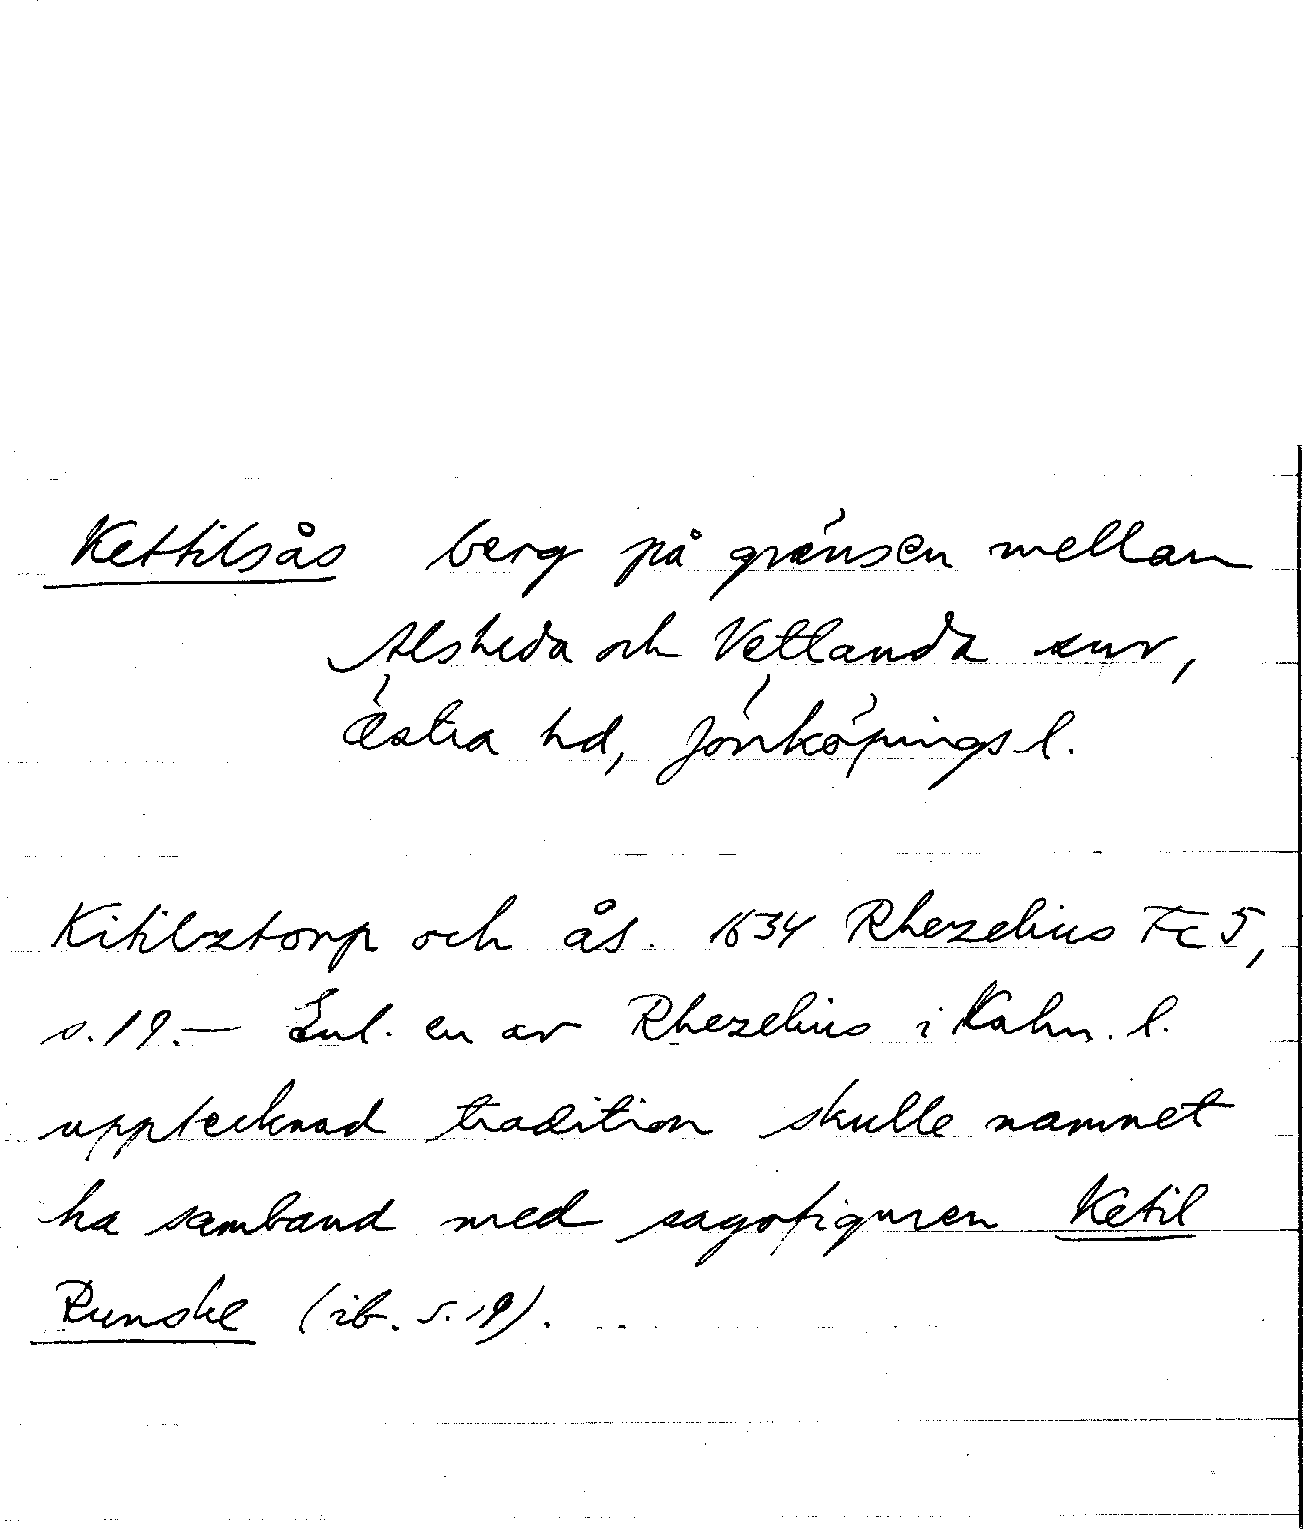 Kettilsås berg på gränsen mellan
Alsheda och Vetlanda snr,
Östra hd, Jönköpings l.
Kitilsztorp och ås. 1634 Rhezelius Fc 5,
s. 19. — Enl. en av Rhezelius i Kalm. l.
upptecknad tradition skulle namnet
ha samband med sagofiguren Ketil
Runske (ib. s. 19).